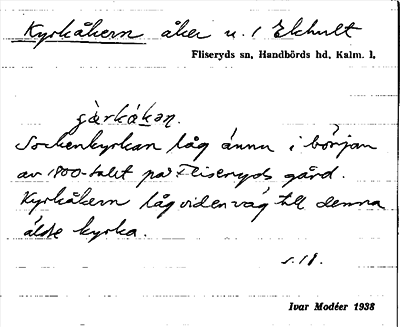 Kyrkåkern åker u. / Ekhult
Fliseryds sn, Handbörds hd, Kalm. l.
Sockenkyrkan låg ännu i början
av 1800-talet på Fliseryds gård.
Kyrkåkern låg viden väg till denna
äldre kyrka.
s. 18.
Ivar Modéer 1938